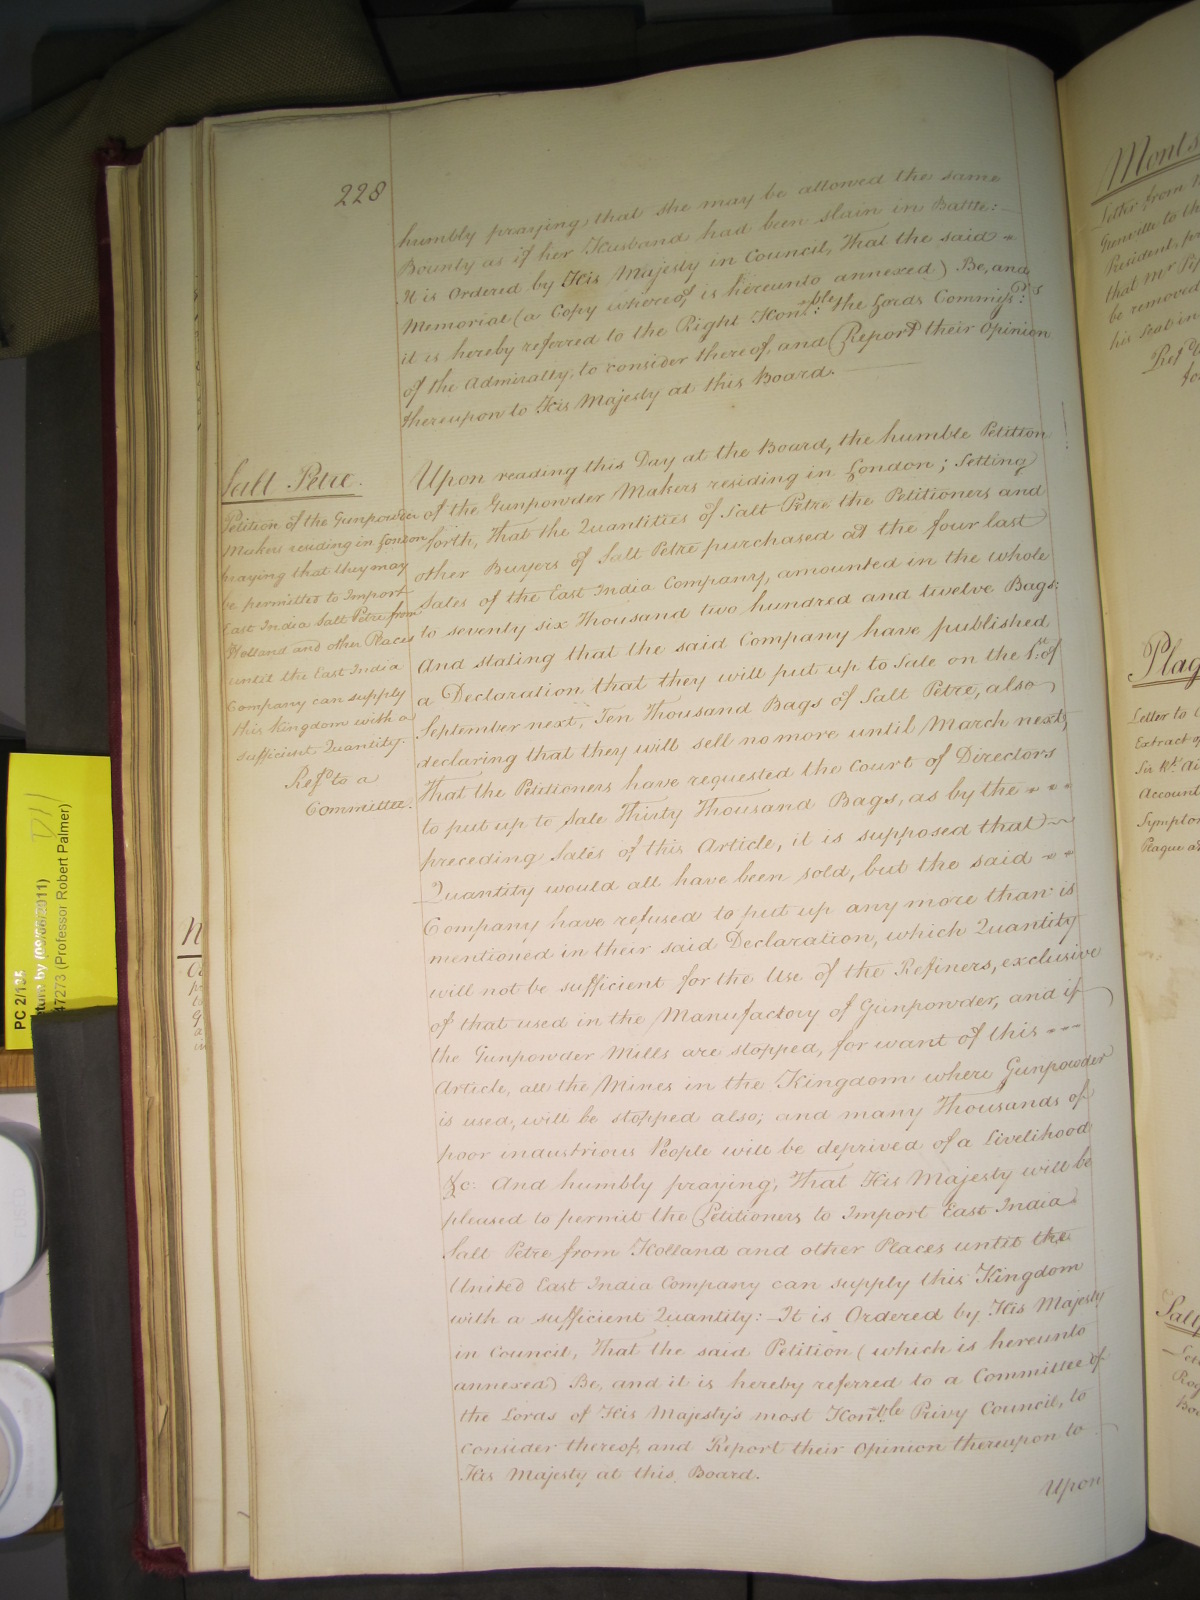 228
humbly praying that she may be allowed the same
Bounty as if her Husband had been slain in Battle:
It is Ordered by His Majesty in Council, That the said
Memorial (a Copy whereof is hereunto annexed) Be, and
it is hereby referred to the Right Hon:ble the Lords Commiss:rs
of the Admiralty, to consider thereof, and Report their Opinion
thereupon to His Majesty at this Board.
Salt Petre.
Petition of the Gunpowder
Makers residing in London
praying that they may
be permitted to Import
East India Salt Petre from
Holland and other Places
until the East India
Company can supply
this Kingdom with a
sufficient Quantity.
Ref:d to a
Committee.
Upon reading this Day at the Board, the humble Petition
of the Gunpowder Makers residing in London; Setting
forth, That the Quantities of Salt Petre the Petitioners and
other Buyers of Salt Petre purchased at the four last
Sales of the East India Company, amounted in the whole
to seventy six Thousand two hundred and twelve Bags:
And stating that the said Company have published
a Declaration that they will put up to Sale on the 1.st of
September next, Ten Thousand Bags of Salt Petre, also
declaring that they will sell no more until March next,
That the Petitioners have requested the Court of Directors
to put up to Sale Thirty Thousand Bags, as by the
preceding Sales of this Article, it is supposed that
Quantity would all have been sold, but the said
Company have refused to put up any more than is
mentioned in their said Declaration, which Quantity
will not be sufficient for the Use of the Refiners, exclusive
of that used in the Manufactory of Gunpowder, and if
the Gunpowder Mills are stopped, for want of this
Article, all the Mines in the Kingdom where Gunpowder
is used, will be stopped also; and many Thousands of
poor industrious People will be deprived of a Livelihood
&c. And humbly praying, That His Majesty will be
pleased to permit the Petitioners to Import East India
Salt Petre from Holland and other Places until the
United East India Company can supply this Kingdom
with a sufficient Quantity: It is Ordered by His Majesty
in Council, That the said Petition (which is hereunto
annexed) Be, and it is hereby referred to a Committee of
the Lords of His Majesty's most Hon:ble Privy Council, to
consider thereof, and Report their Opinion thereupon to
His Majesty at this Board.
Upon
PC 2/135
by (09/06/2011)
47273 (Professor Robert Palmer)
D11
Letter from
to the
President,
that Mr
be removed
his Seat in
Plag
Letter to
Extract of
Account
Symptom